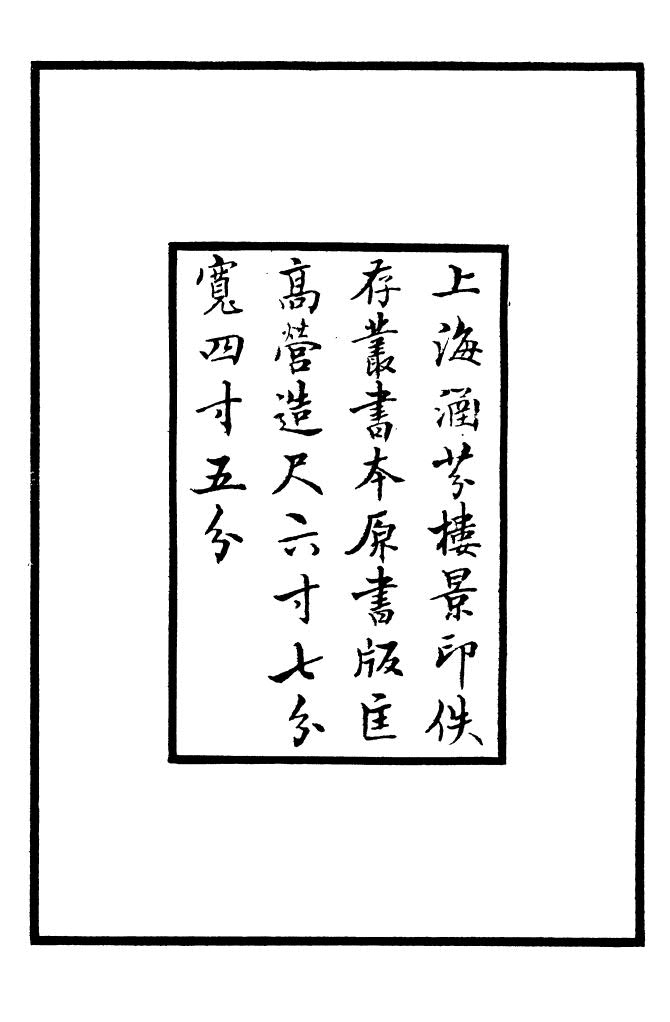 上海涵芬樓景印佚
存叢書本原書版匡
高營造尺六寸七分
寬四寸五分